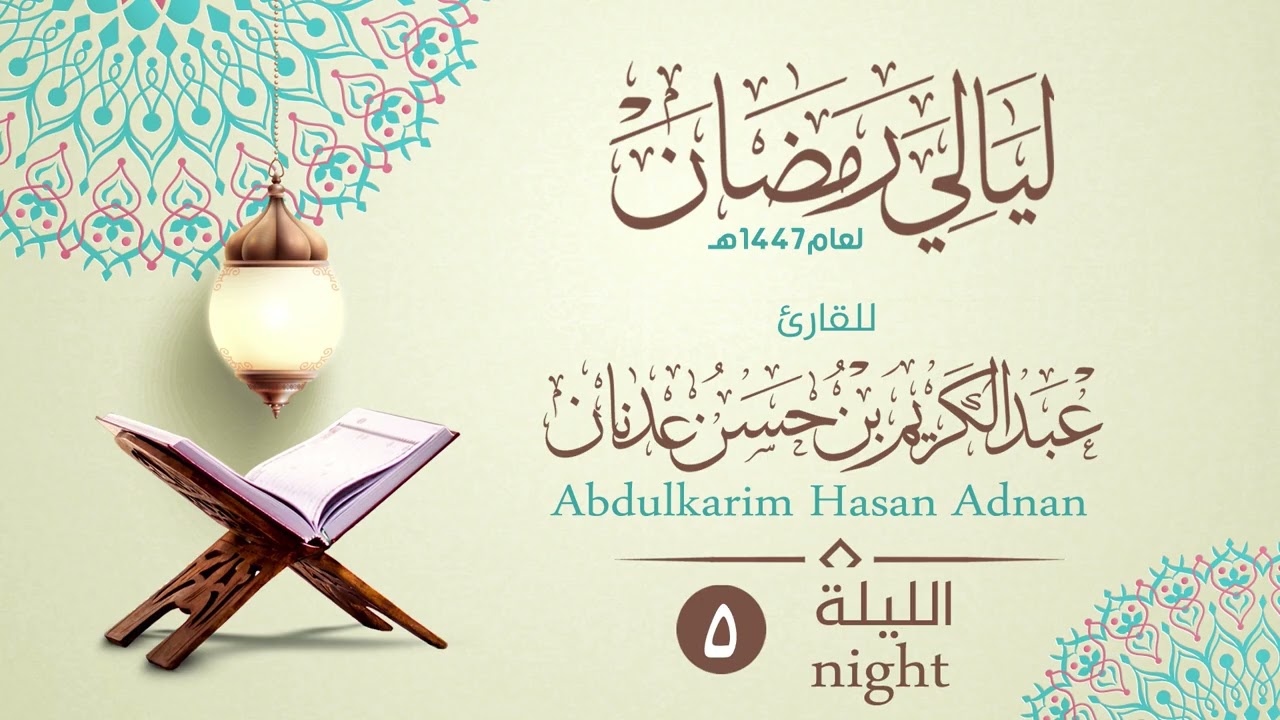 لَيَالِي رَمَضَانَ
لعام1447هـ
للقارئ
عَبْدالكَرِيْم بْنُ حَسَنْ عَدْنَان
Abdulkarim Hasan Adnan
الليلة
٥
night